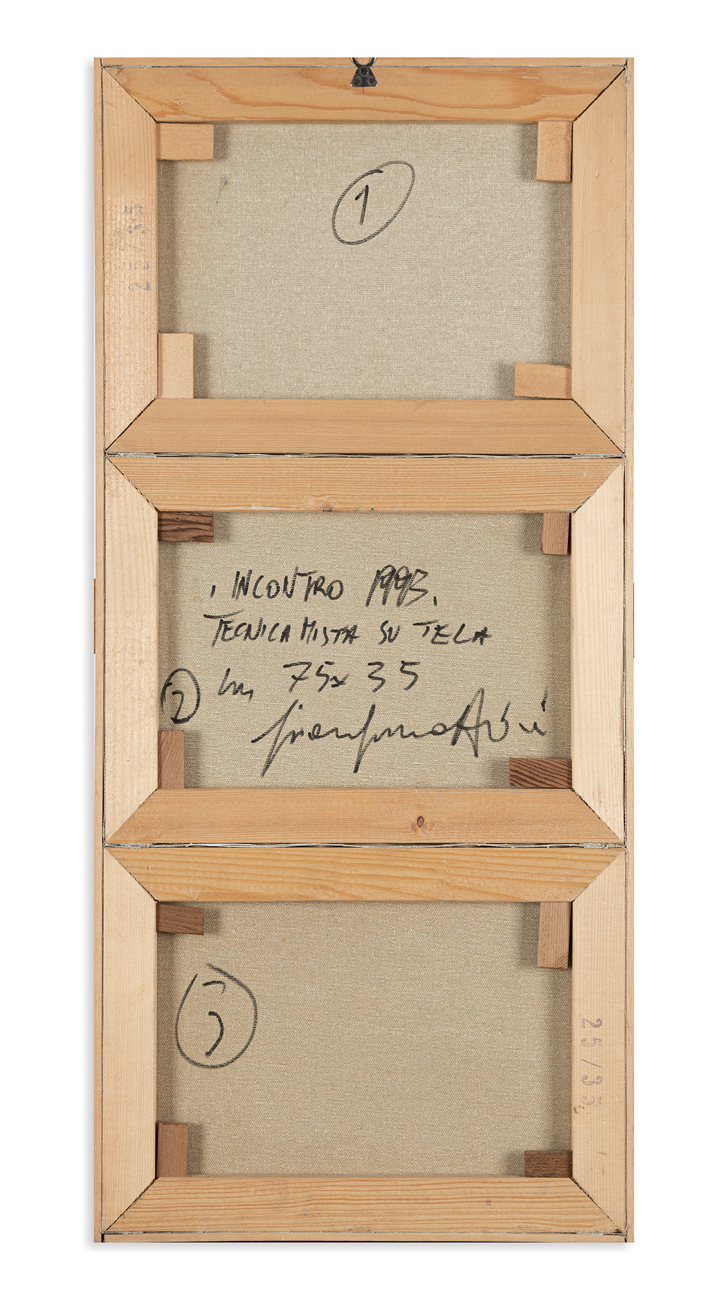 1
25/35
, INCONTRO 1993.
TECNICA MISTA SU TELA
2
cm 75x35
3
25/35